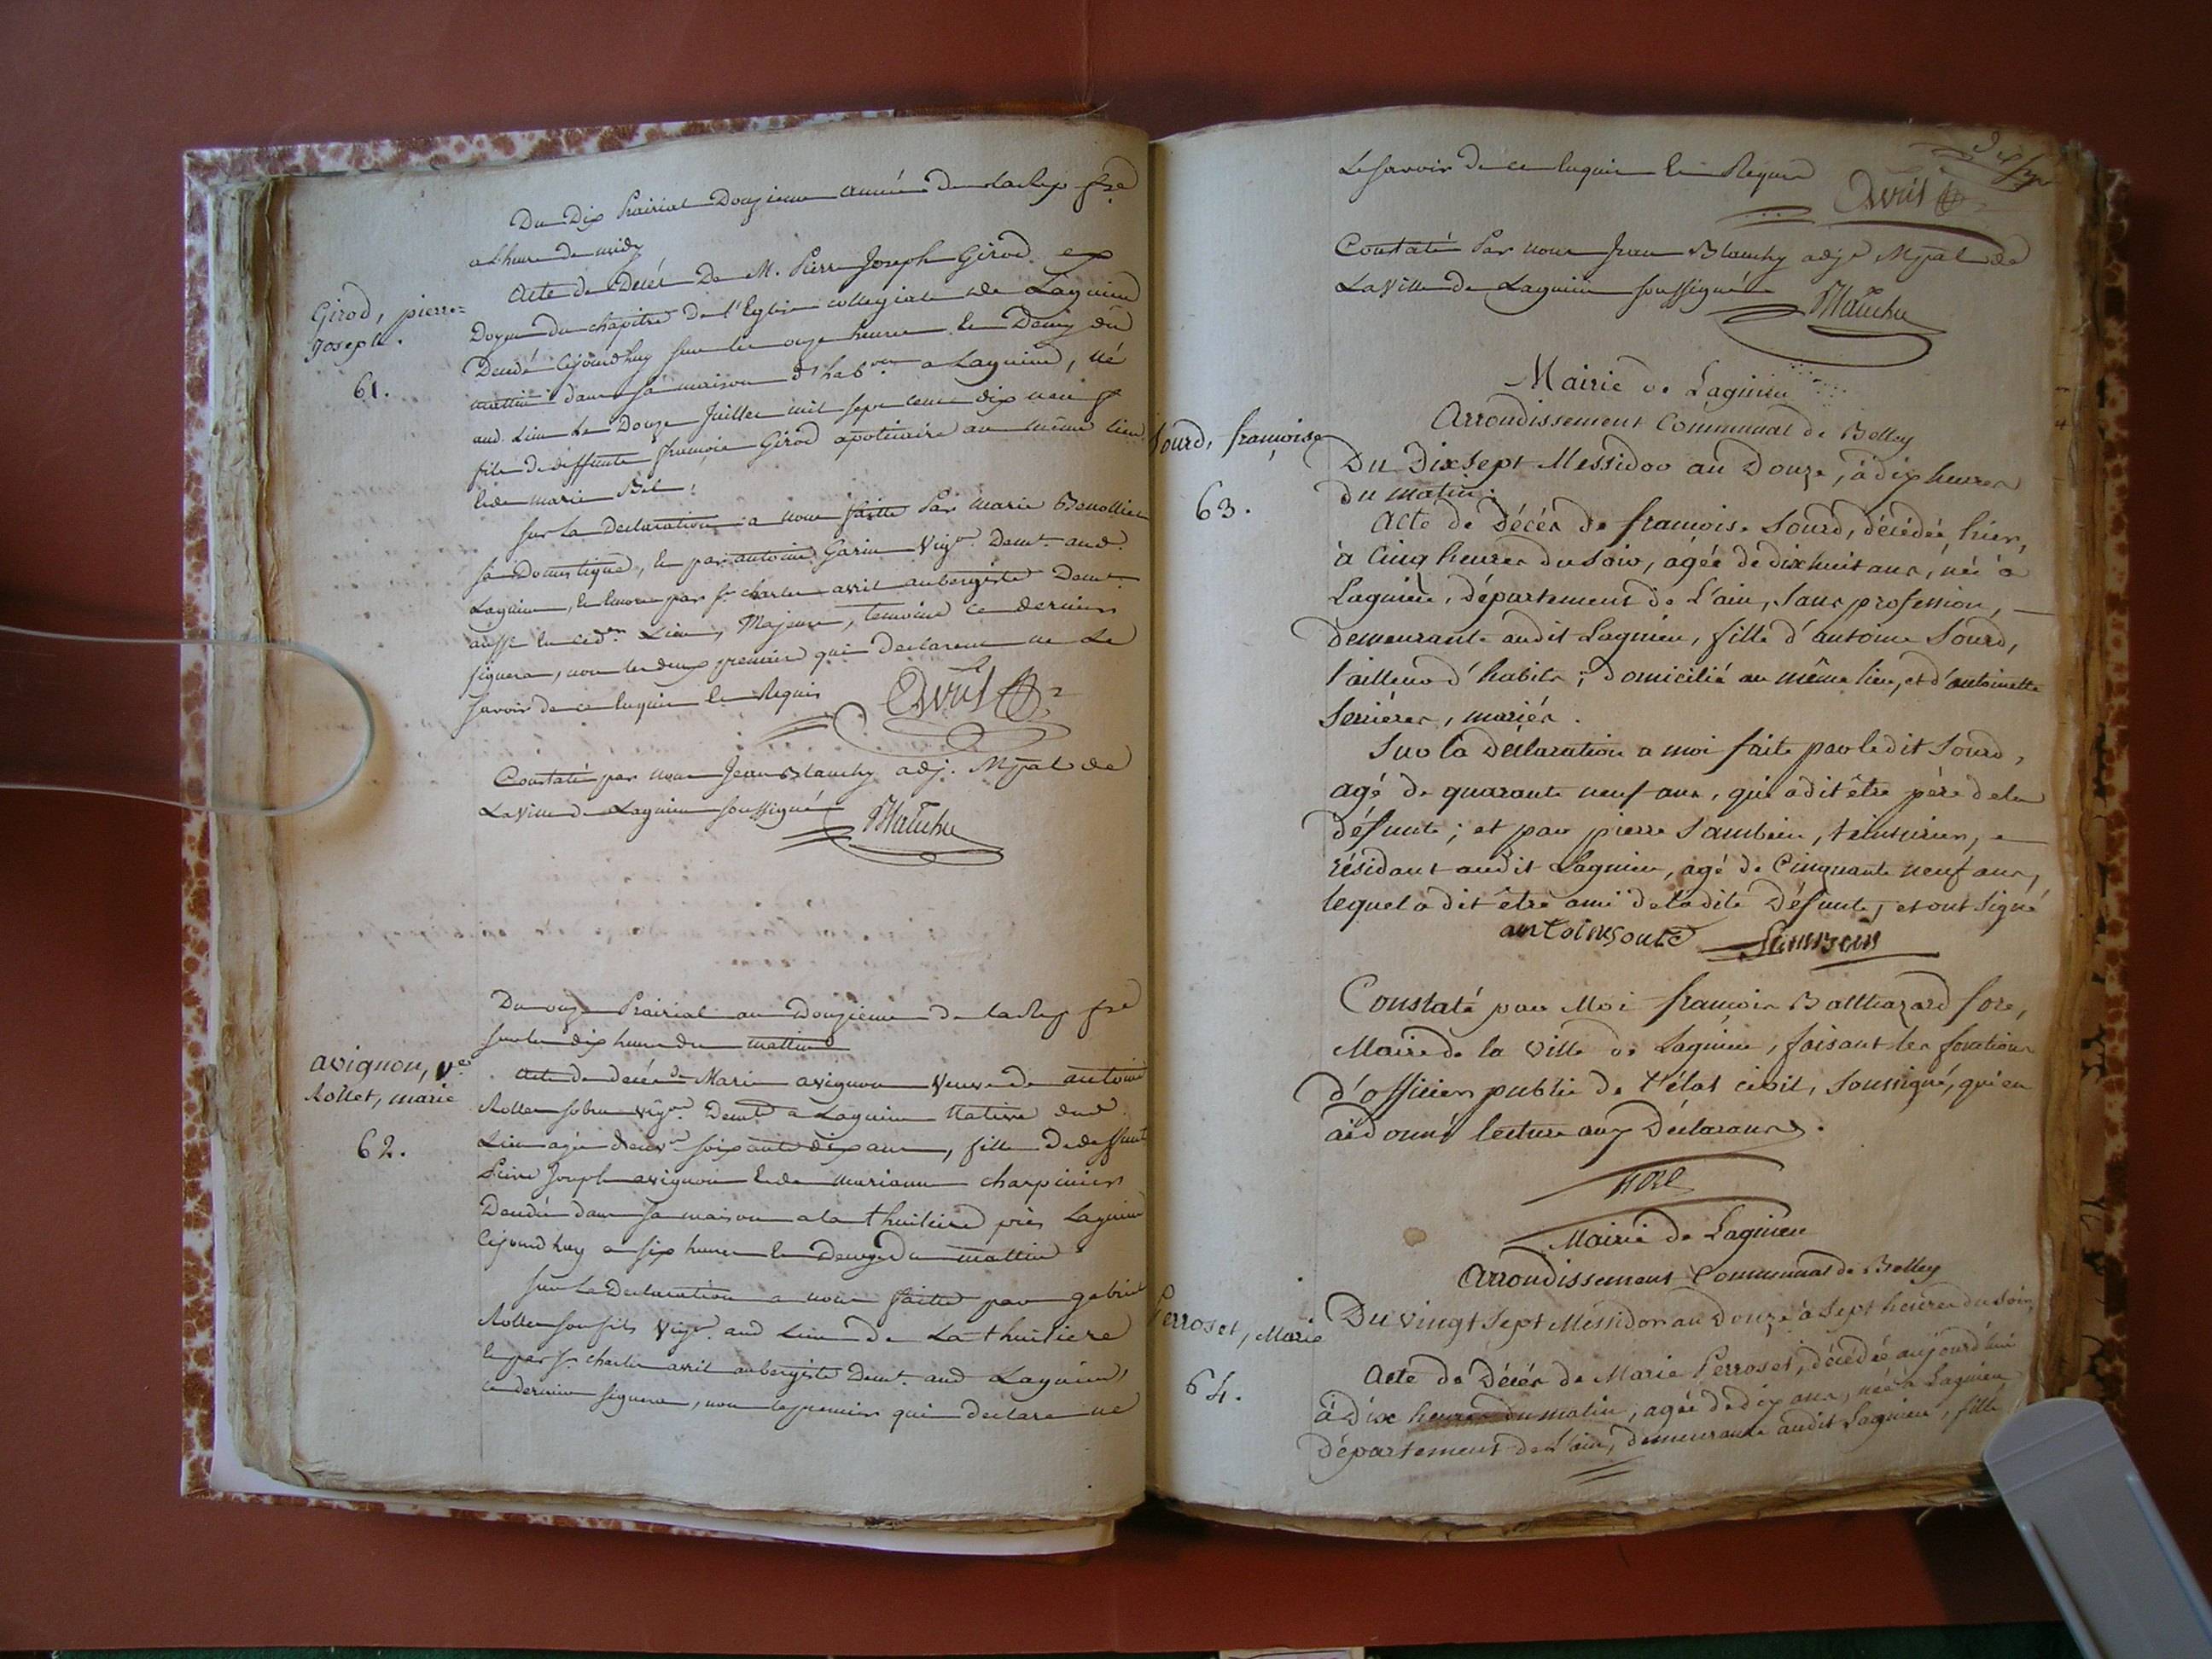 Du Dix Prairial Douzieme année de la Rep fse
a L'heure de midy
Girod, pierre=
joseph.
61.
Acte de Décés De M. Pierre Joseph Girod ex
Doyen du chapitre de l'Eglise collegiale de Lagnieu
Decedé cejourdhuy sur les onze heures & Demy du
mattin dans sa maison d'habon a Lagnieu, né
aud. Lieu Le Douze Juillet mil sept cent dix neuf
fils de deffunts françois Girod apoticaire au même lieu
& de marie Bel
Sur La Declaration a nous faitte Par marie
sa Domestique, & par antoine Garin Vigon Demt. aud.
Lagnieu, & Encore par sr. charles avril aubergiste Demt.
aussi en led. Lieu, Majeurs, temoins ce dernier
signera, non les deux premiers qui declarent ne Le
savoir de ce enquis & Requis
Avril
Constaté par nous Jean Blanchy adj. Mpal de
La Ville de Lagnieu soussigné
Blanchy
Du onze Prairial an Douzieme de la Rep fse
sur les dix heures du mattin
avignon, ve
Rollet, marie
62.
Acte de décés de Marie avignon Veuve de antoine
Rollet vigon Demte a Lagnieu Native dud.
Lieu agée d'envon soixante dix ans, fille de deffunt
Pierre Joseph avignon & de marianne charpinier
Decedée dans sa maison a la thuiliere près Lagnieu
Cejourdhuy a six heures & Demy du mattin
Sur La Declaration a nous faitte par gabriel
Rollet son fils Vigon. aud Lieu de La thuiliere
& par sr. charles avril aubergiste Demt. aud Lagnieu,
ce dernier signera, non le premier qui declare ne
Le savoir de ce enquis & Requis
Avril
Constaté Par nous Jean Blanchy adjt Mpal de
La Ville de Lagnieu soussigné
Blanchy
Mairie de Lagnieu
Arrondissement Communal de Belley
Sourd, françoise
63.
Du Dix Sept Messidor an Douze, à dix heures
du matin.
Acte de Décès de françoise Sourd, décédée hier,
à Cinq heures du Soir, agée de dix huit ans, née à
Lagnieu, département de L'ain, Sans profession,
demeurante audit Lagnieu, fille d'antoine Sourd,
tailleur d'habits, domicilié au même lieu, et d'antoinette
Serrières, mariés.
Sur la Déclaration a moi faite par ledit Sourd,
agé de quarante neuf ans, qui a dit être père de la
défunte; et par pierre Sambein, teinturier,
résidant audit Lagnieu, agé de Cinquante neuf ans,
lequel a dit être ami de ladite Défunte, et ont signé
antoin sourd Sambein
Constaté par Moi françois Balthazard fore,
Maire de la Ville de Lagnieu, faisant les fonctions
d'officier public de l'état civil, soussigné, qui en
ai donné lecture aux Déclarans.
fore
Mairie de Lagnieu
Arrondissement Communal de Belley
Perroset, Marie
64.
Du Vingt Sept Messidor an Douze à Sept heures du soir,
Acte de Décès de Marie Perroset, décédée aujourd'hui
à Dix heures du matin, agée de dix ans, née à Lagnieu
département de L'ain, demeurante audit Lagnieu, fille